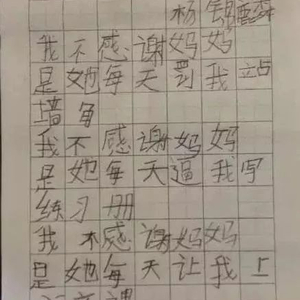 杨
我不感谢妈妈
是她每天罚我站
墙角
我不感谢妈妈
是她每天逼我写
练习册
我不感谢妈妈
是她每天让我上